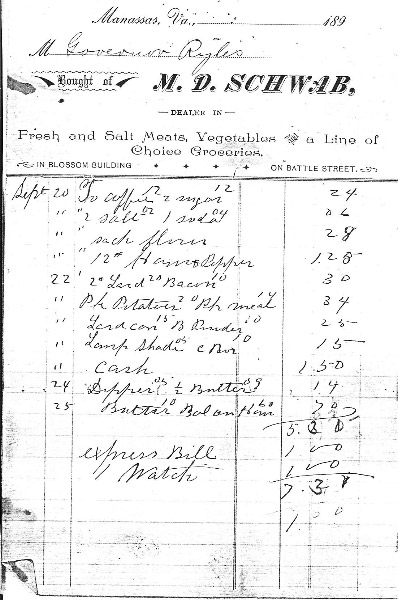 Manassas, Va., 189
M Governor Ryles
Bought of M. D. SCHWAB,
— DEALER IN —
Fresh and Salt Meats, Vegetables and a Line of
Choice Groceries.
IN BLOSSOM BUILDING ON BATTLE STREET.
Sept 20 To coffee 12 2 sugar 12 24
" 2 salt 02 1 soda 04 06
" sack flour 28
" 12# Ham & Pepper 1 28
22 " 2# Lard 20 Bacon 10 30
" Pk Potatoes 20 Pk meal 14 34
" Lard can 15 B Powder 10 25
" Lamp Shade 05 10 15
" Cash 1 50
24 Dipper 05 1/2 Butter 09 14
25 Butter 10 Bal on 60 70
5.
express Bill 1 00
1 Watch 1 00
7.
1.